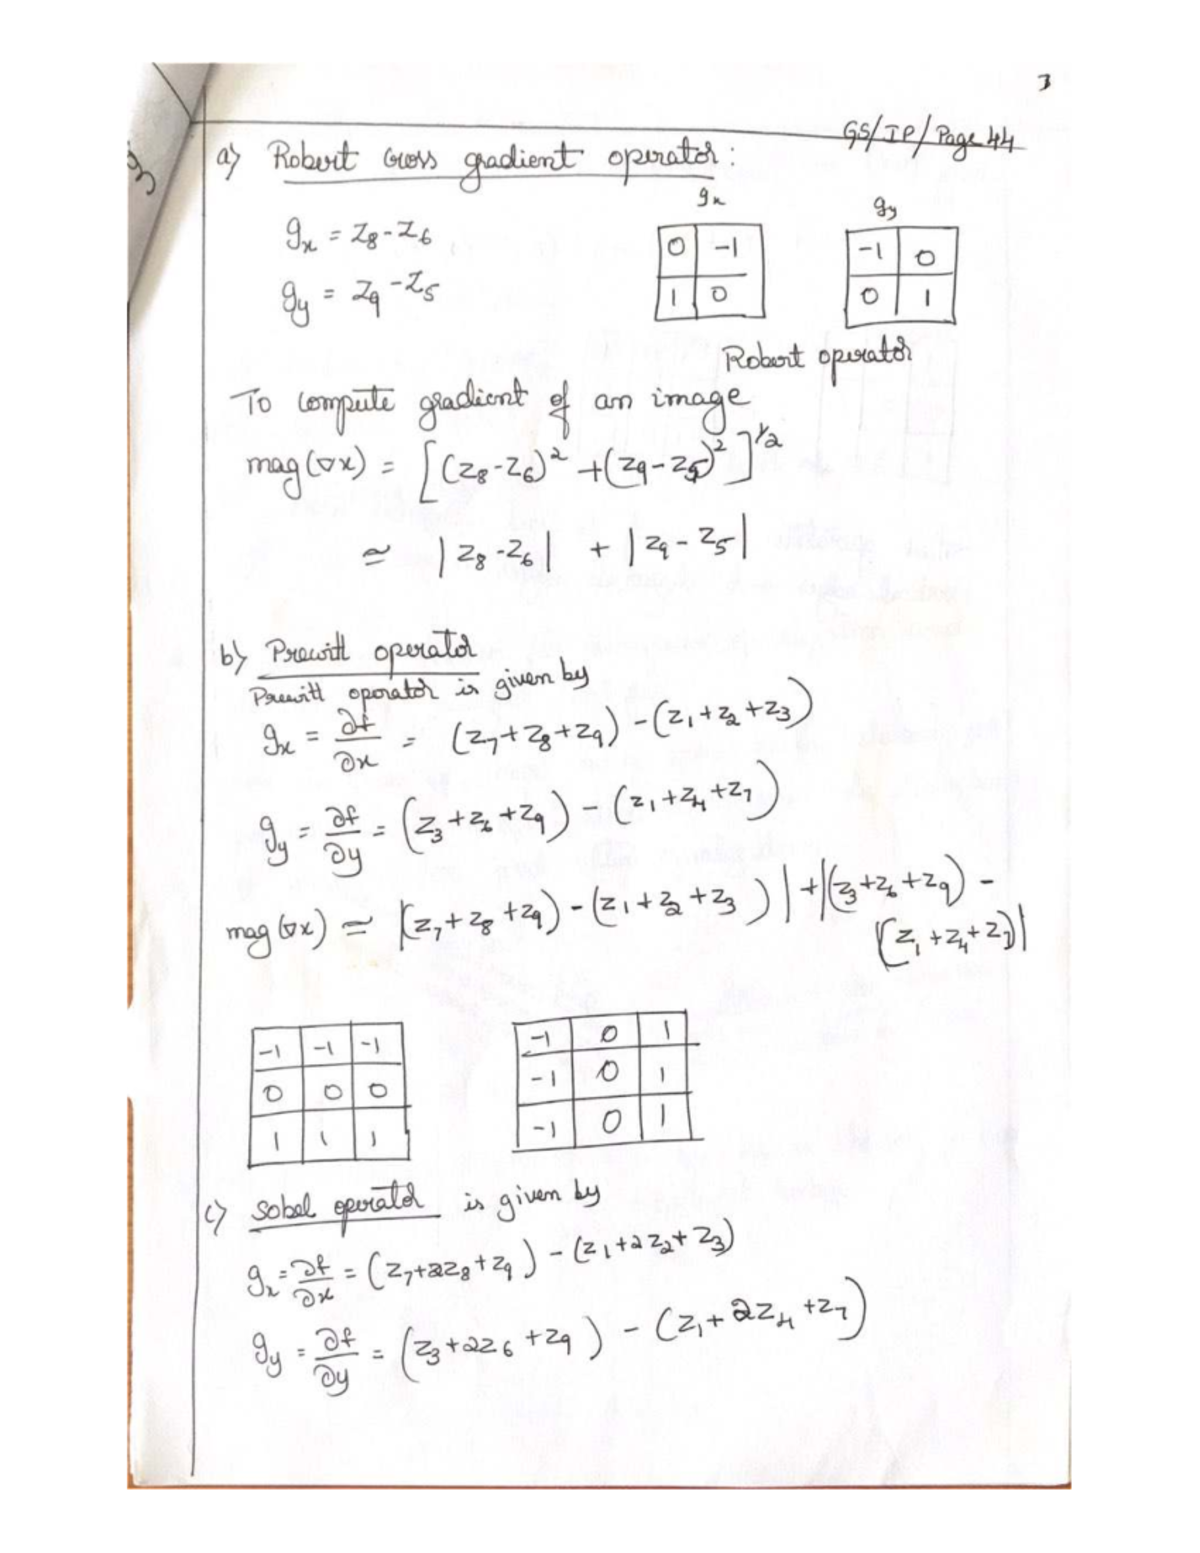 3
GS/IP/Page 44
a) Robert cross gradient operator:
gx = z8-z6
gy = z9-z5
gx
0 -1
1 0
gy
-1 0
0 1
Robert operator
To compute gradient of an image
mag(∇x) = [(z8-z6)² + (z9-z5)²]^1/2
≃ |z8-z6| + |z9-z5|
b) Prewitt operator
Prewitt operator is given by
gx = ∂f/∂x = (z7+z8+z9) - (z1+z2+z3)
gy = ∂f/∂y = (z3+z6+z9) - (z1+z4+z7)
mag(∇x) ≃ |(z7+z8+z9) - (z1+z2+z3)| + |(z3+z6+z9) -
(z1+z4+z7)|
-1 -1 -1
0 0 0
1 1 1
-1 0 1
-1 0 1
-1 0 1
c) sobel operator is given by
gx = ∂f/∂x = (z7+2z8+z9) - (z1+2z2+z3)
gy = ∂f/∂y = (z3+2z6+z9) - (z1+2z4+z7)